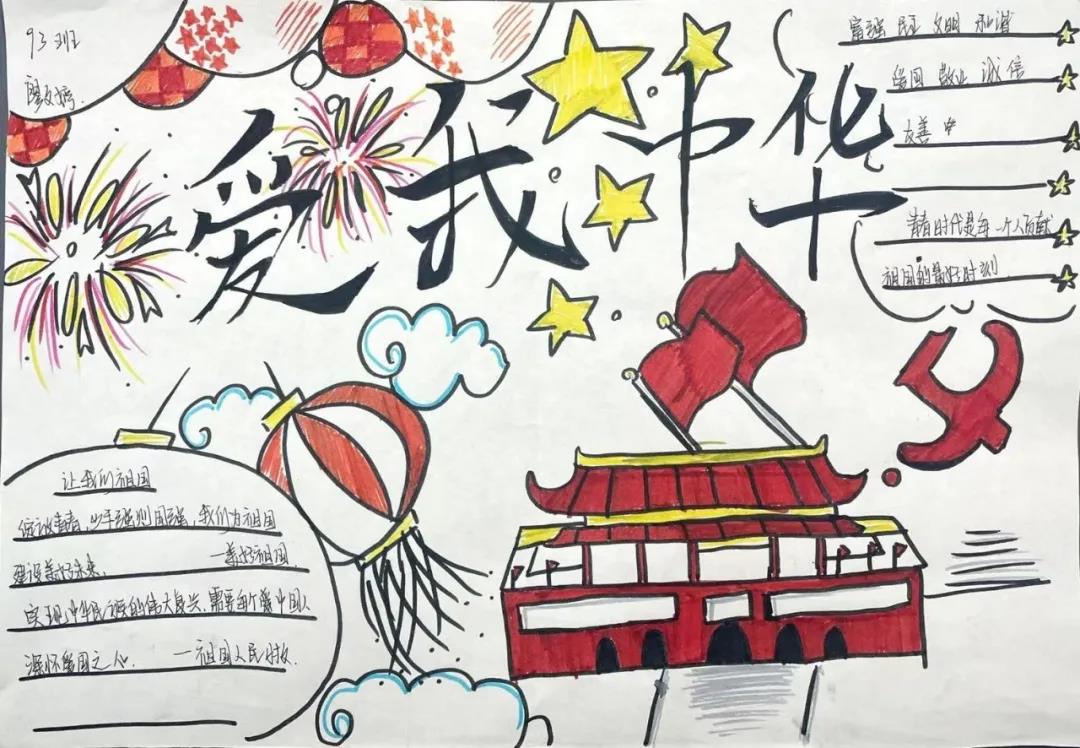 93班
爱我中华
富强 民主 文明 和谐
爱国 敬业 诚信
友善
青春时代是每一个人贡献
祖国的最好时刻
让我们祖国
少年强则国强，我们为祖国
建设美好未来，
一美好祖国
实现中华民族的伟大复兴，需要每个爱中国人
深怀爱国之心。 一祖国人民